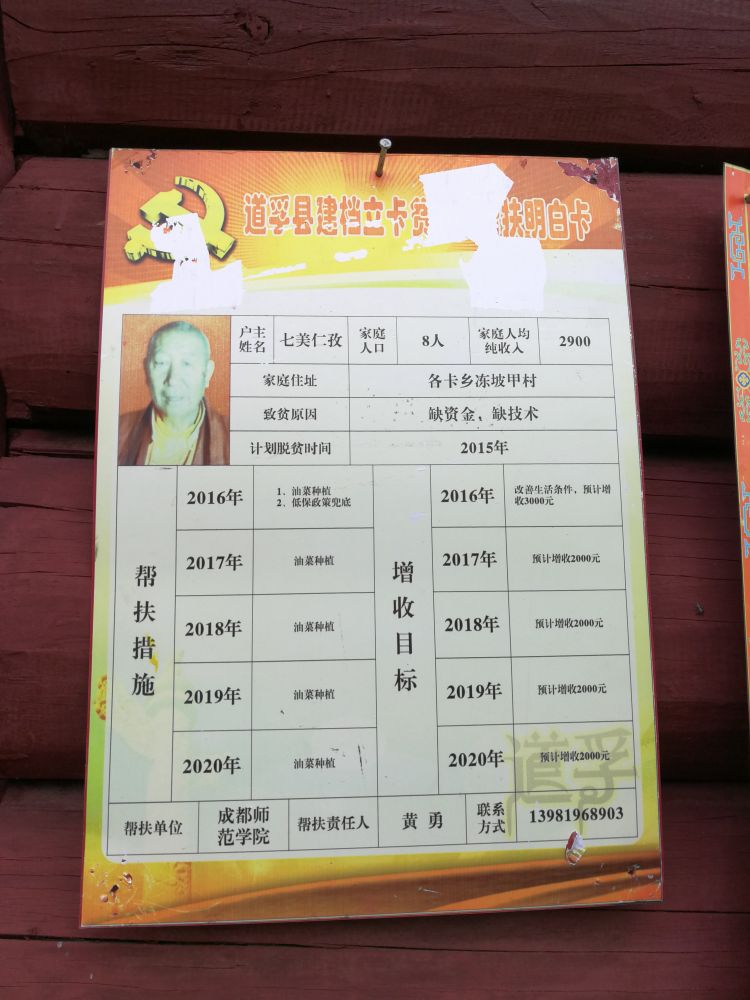 道孚县建档立卡贫 扶明白卡
户主姓名 七美仁孜 家庭人口 8人 家庭人均纯收入 2900
家庭住址 各卡乡冻坡甲村
致贫原因 缺资金、缺技术
计划脱贫时间 2015年
帮扶措施
2016年 1、油菜种植
2、低保政策兜底
2017年 油菜种植
2018年 油菜种植
2019年 油菜种植
2020年 油菜种植
增收目标
2016年 改善生活条件,预计增
收3000元
2017年 预计增收2000元
2018年 预计增收2000元
2019年 预计增收2000元
2020年 预计增收2000元
道孚
帮扶单位 成都师范学院 帮扶责任人 黄勇 联系方式 13981968903